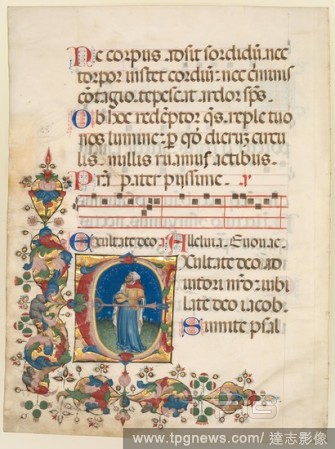 Ne corpus adsit sordidū: nec
torpor instet cordiū: nec criminis
cōtagio. tepescat ardor sps.
Ob hoc redēptor q̄s. reple tuo
nos lumine: p qd dierum circu
lis. nullis ruamus actibus.
pater piissime.
Exultate deo Alleluia. Euouae.
Exultate deo ad
iutori nr̄o: iubi
late deo iacob.
Sumite psal
www.tpgnews.com/ 達志影像